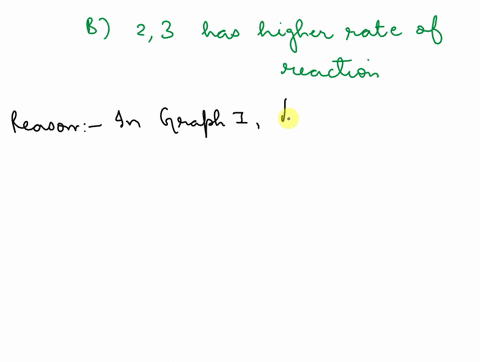 B) 2, 3 has higher rate of
reaction
Reason:- In Graph I,